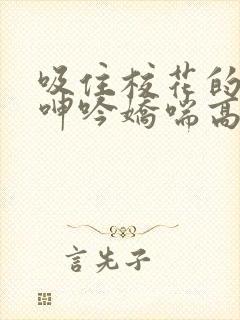 吸住校花的
呻吟娇喘高
言先子